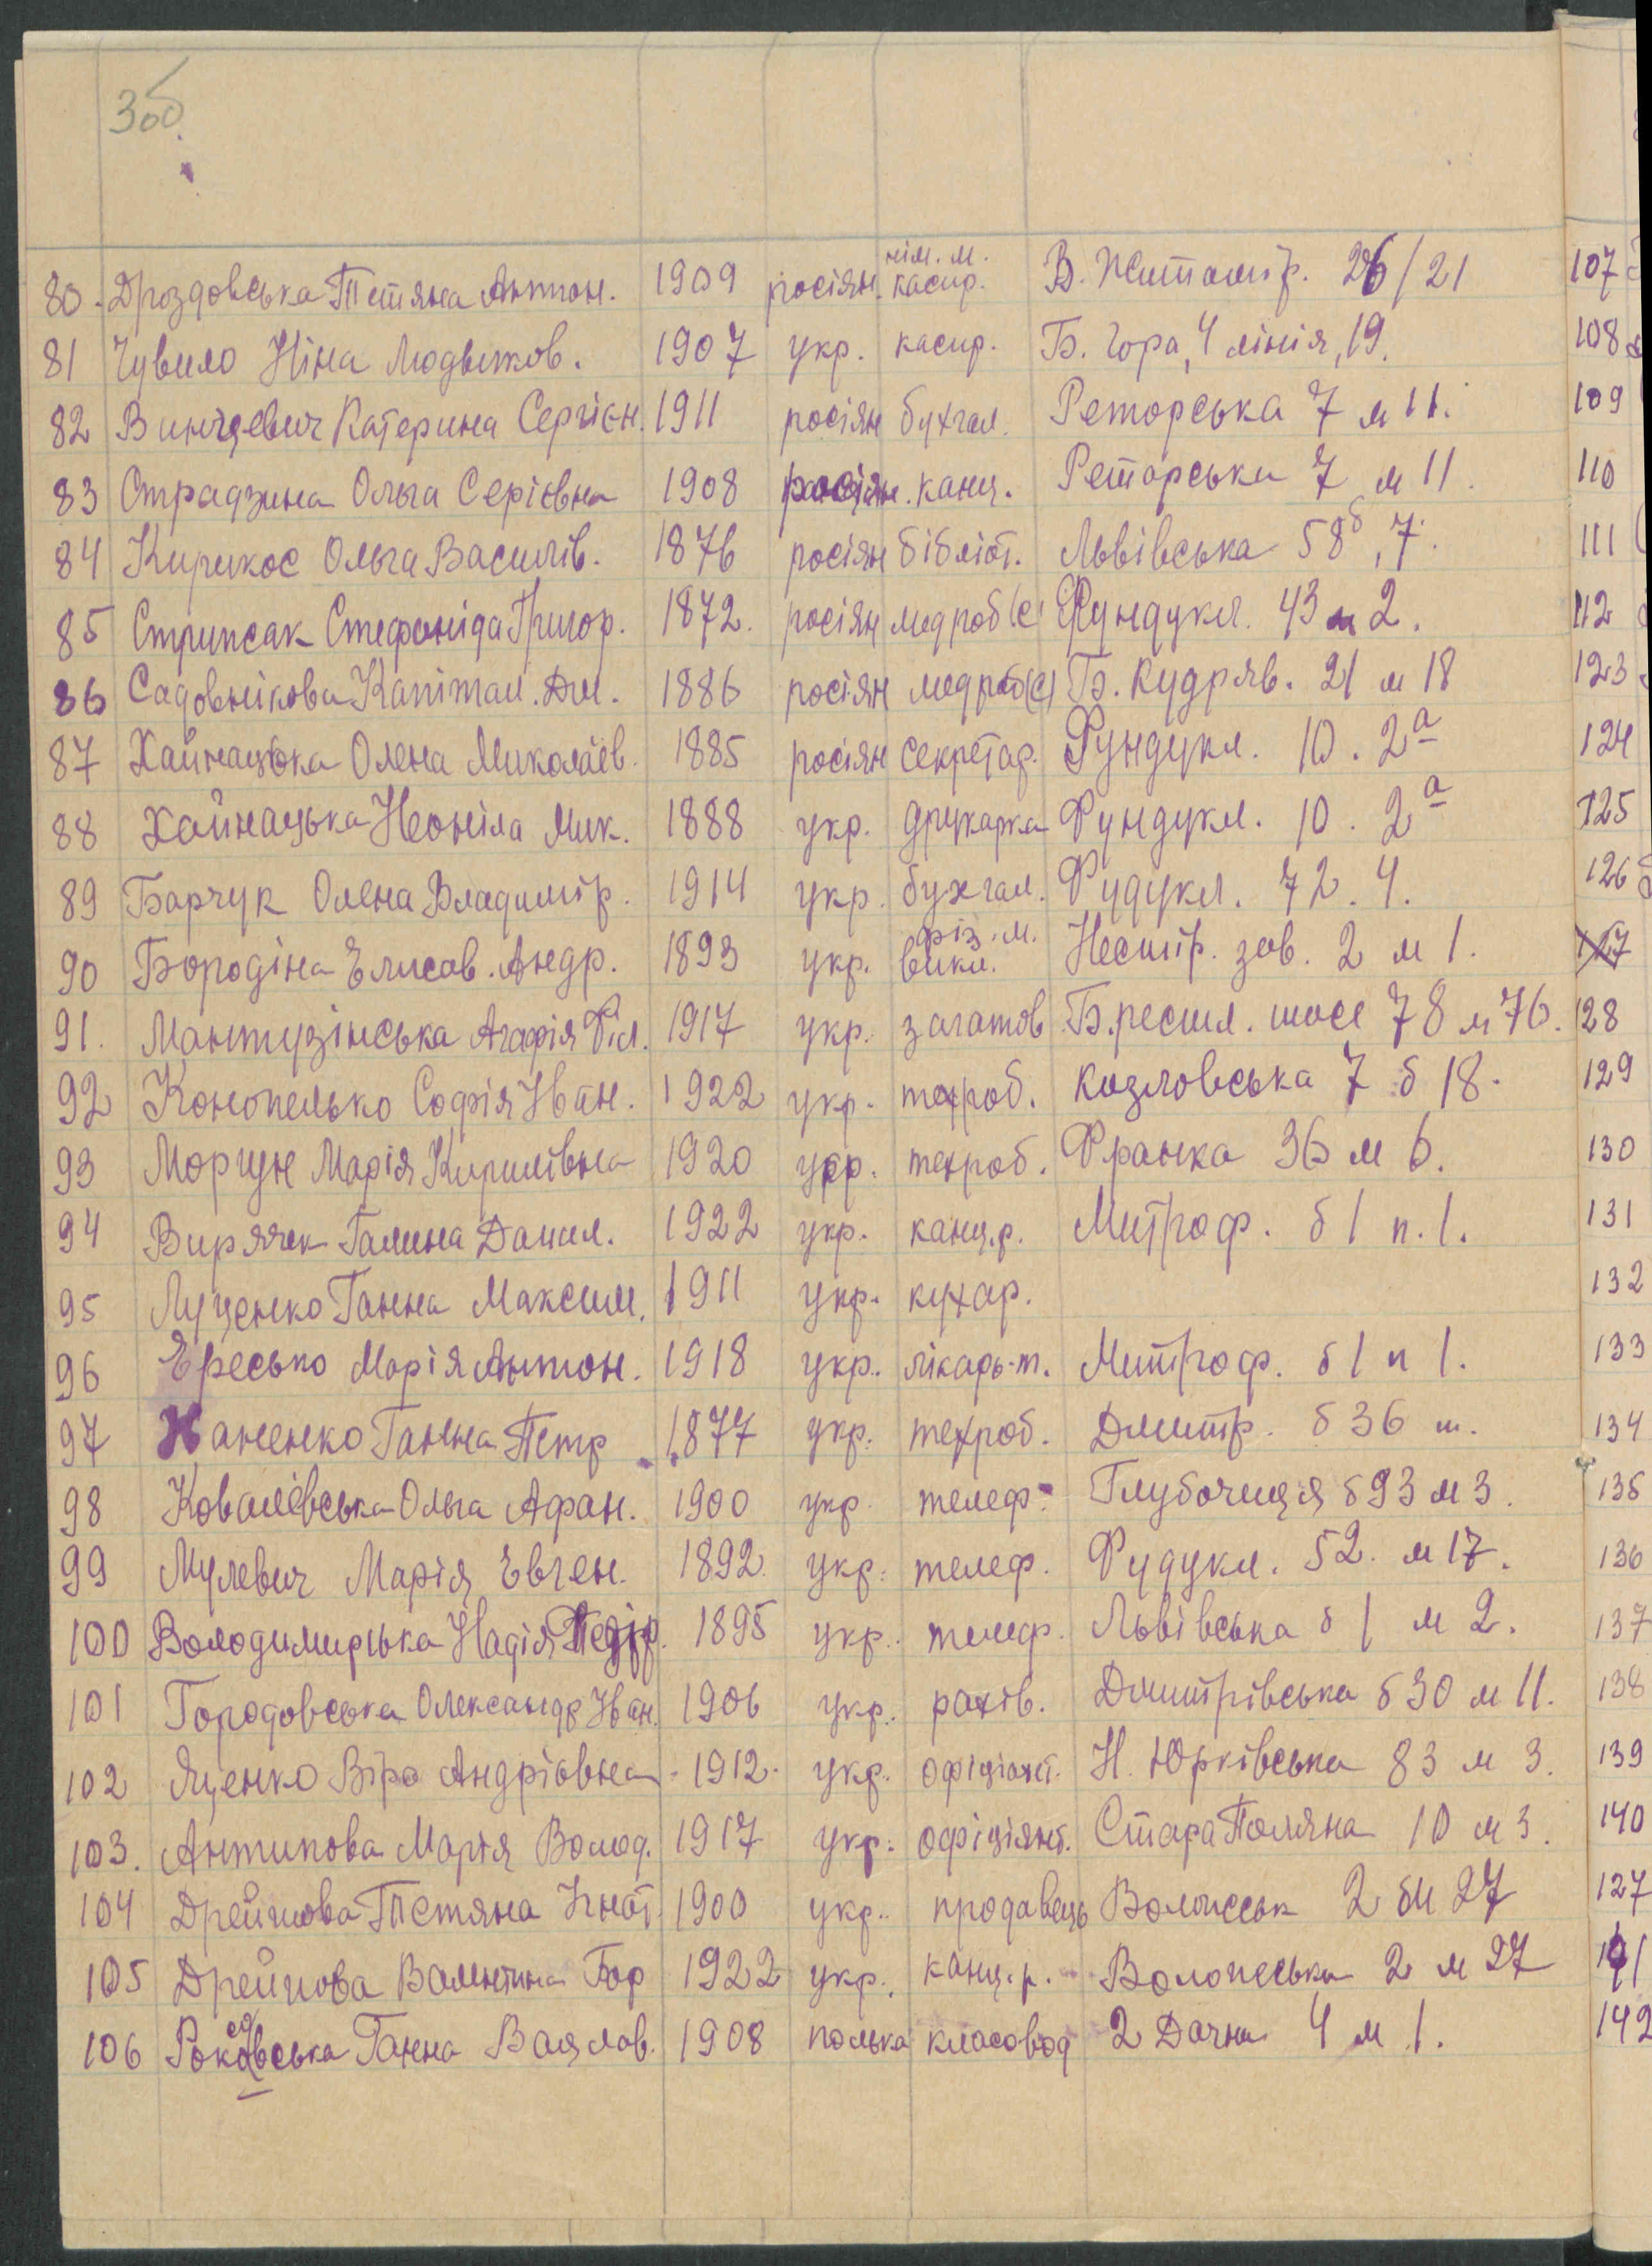 3об.
80. Дроздовська Тетяна Антон. 1909 росіян. нім. м. касир. В. Житомір. 26/21
81 Чувило Ніна Людвиков. 1907 укр. касир. Б. Гора, 4 лінія, 19.
82 Винцевич Катерина Сергієн. 1911 росіян бухгал. Реторська 7 м 11.
83 Страдзина Ольга Серієвна 1908 росіян. канц. Реторська 7 м 11.
84 Кирикос Ольга Василів. 1876 росіян бібліот. Львівська 58б, 7.
85 Стрипсак Стефоніда Григор. 1872. росіян медроб(с) Фундукл. 43 м 2.
86 Садовнікова Капітал. Дм. 1886 росіян медроб(с) Б. Кудряв. 21 м 18
87 Хайнацька Олена Миколаїв. 1885 росіян секретар. Фундукл. 10. 2а
88 Хайнацька Неоніла Мик. 1888 укр. друкарка Фундукл. 10. 2а
89 Барчук Олена Владимір. 1914 укр. бухгал. Фудукл. 72. 4.
90 Бородіна Елисав. Андр. 1893 укр. фіз. м. викл. Нестір. зав. 2 м 1.
91. Мантузінська Агафія Філ. 1917 укр. загатов Б.рестл. шосе 78 м 76.
92 Конопелько Софія Іван. 1922 укр. техроб. Козловська 7 б 18.
93 Моргун Марія Кирилівна 1920 укр. техроб. Франка 36 м 6.
94 Вирячек Галина Данил. 1922 укр. канц.р. Митроф. б 1 п. 1.
95 Луценко Ганна Максим. 1911 укр. кухар.
96 Ересько Марія Антон. 1918 укр. лікарь-т. Митроф. б 1 п 1.
97 Наненко Ганна Петр 1877 укр. техроб. Дмитр. б 36 ш.
98 Ковалівська Ольга Афан. 1900 укр. телеф. Глубочиця б 93 м 3.
99 Мулевич Марія Евген. 1892. укр. телеф. Фудукл. 52. м 17.
100 Володимирська Надія 1895 укр. телеф. Львівська б 1 м 2.
101 Городовська Олександр Іван. 1906 укр. рахів. Дмитрівська б 30 м 11.
102 Яценко Віра Андріавна 1912. укр. офіціант. Н. Юрківська 83 м 3.
103. Антипова Марія Волод. 1917 укр. офіціянт. Стара Поляна 10 м 3.
104 Дрейчова Тетяна Ігнат. 1900 укр. продавець 2 бм 27
105 Дрейчова Валентина Гор 1922 укр. канц.р. 2 м 27
106 Рокосовська Ганна Вацлав. 1908 полька класовод 2 Дачна 4 м 1.
107
108
109
110
111
112
123
124
125
126
127
128
129
130
131
132
133
134
135
136
137
138
139
140
127
141
142